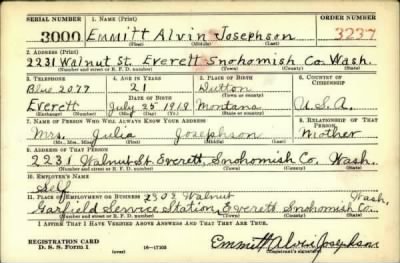 SERIAL NUMBER 1. NAME (Print) ORDER NUMBER
3000 Emmitt Alvin Josephson 3237
(First) (Middle) (Last)
2. ADDRESS (Print)
2231 Walnut St. Everett Snohomish Co. Wash.
(Number and street or R. F. D. number) (Town) (County) (State)
3. TELEPHONE 4. AGE IN YEARS 5. PLACE OF BIRTH 6. COUNTRY OF CITIZENSHIP
Blue 2077 21 Dutton
DATE OF BIRTH (Town or county)
Everett July 25 1919 Montana U.S.A.
(Exchange) (Number) (Mo.) (Day) (Yr.) (State or country)
7. NAME OF PERSON WHO WILL ALWAYS KNOW YOUR ADDRESS 8. RELATIONSHIP OF THAT PERSON
Mrs. Julia Josephson Mother
(Mr., Mrs., Miss) (First) (Middle) (Last)
9. ADDRESS OF THAT PERSON
2231 Walnut St. Everett, Snohomish Co. Wash.
(Number and street or R. F. D. number) (Town) (County) (State)
10. EMPLOYER'S NAME
Self
11. PLACE OF EMPLOYMENT OR BUSINESS 2302 Walnut Wash.
Garfield Service Station, Everett Snohomish Co.
(Number and street or R. F. D. number) (Town) (County) (State)
I AFFIRM THAT I HAVE VERIFIED ABOVE ANSWERS AND THAT THEY ARE TRUE.
REGISTRATION CARD
D. S. S. Form 1 (over) 16—17105
Emmitt Alvin Josephson
(Registrant's signature)